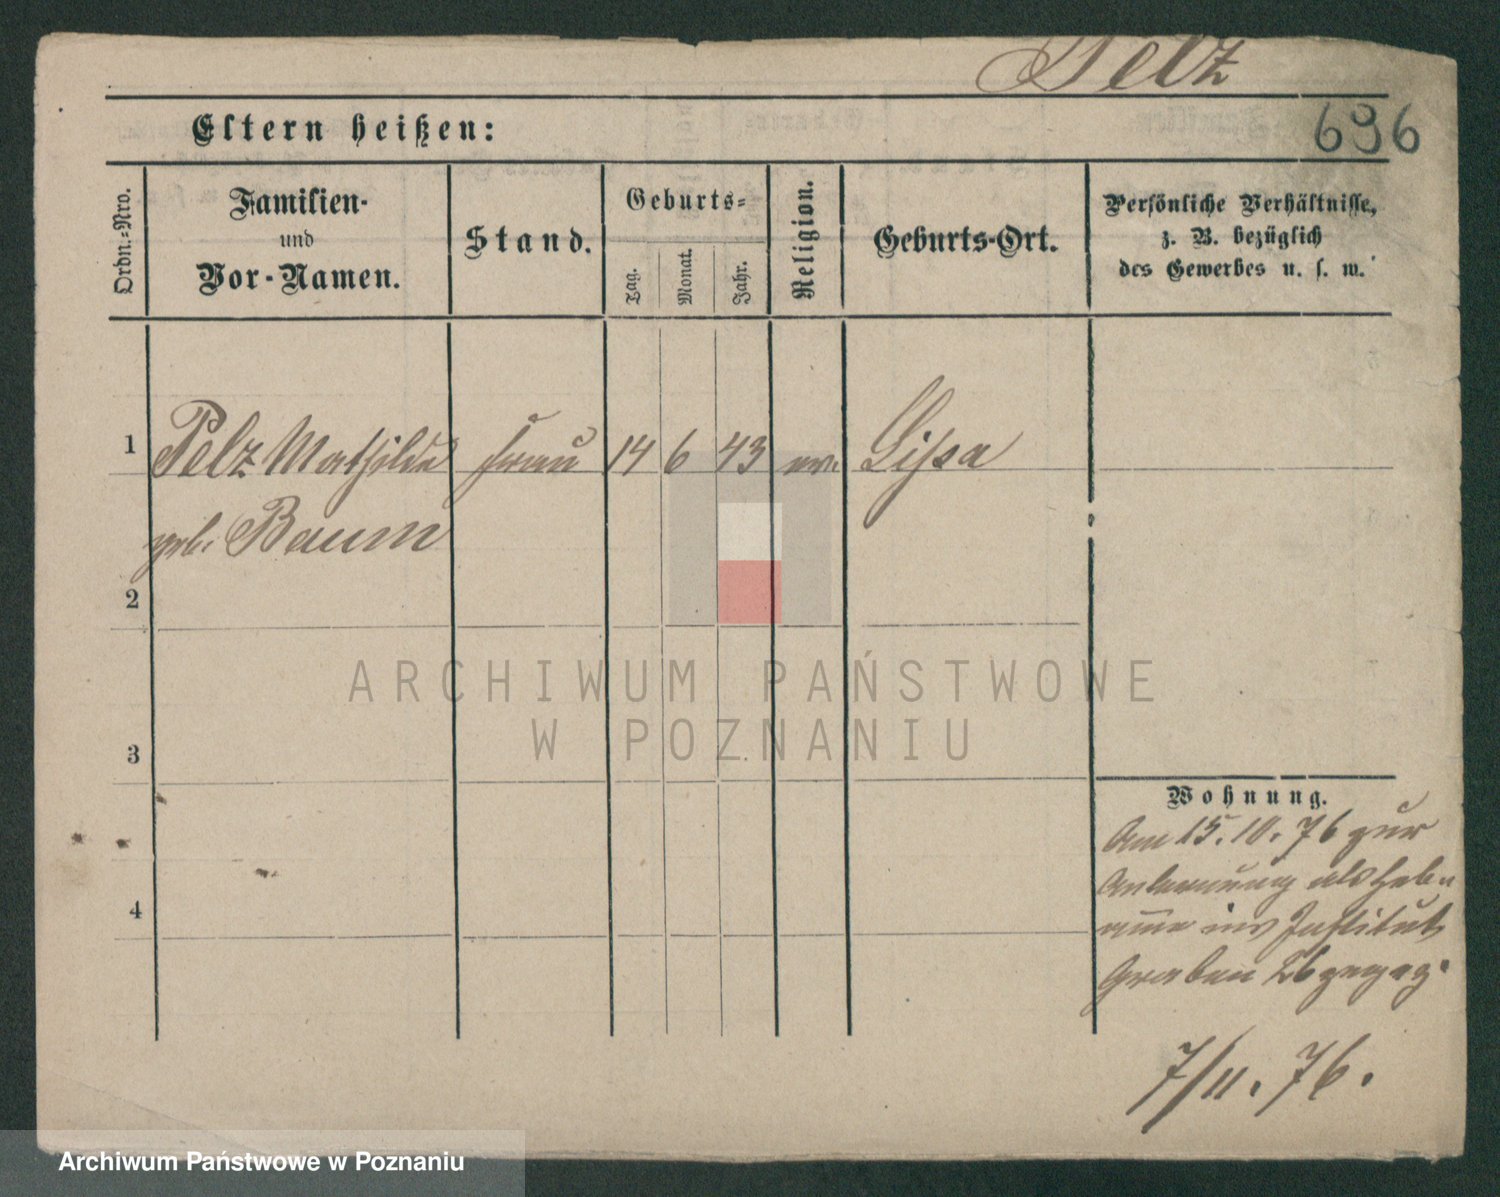 Pelz
Eltern heißen:
696
Ordn.-Nro.
Familien-
und
Vor-Namen.
Stand.
Geburts-
Tag.
Monat.
Jahr.
Religion.
Geburts-Ort.
Persönliche Verhältnisse,
z. B. bezüglich
des Gewerbes u. s. w.
1 Pelz Mathilde Frau 14 6 43 ev. Lissa
geb. Baum
2
3
4
Wohnung.
Am 15. 10. 76 zur
Anlernung als Heb-
amme ins Institut
Graben 26 gezog.
7/11. 76.
ARCHIWUM PAŃSTWOWE
W POZNANIU
Archiwum Państwowe w Poznaniu